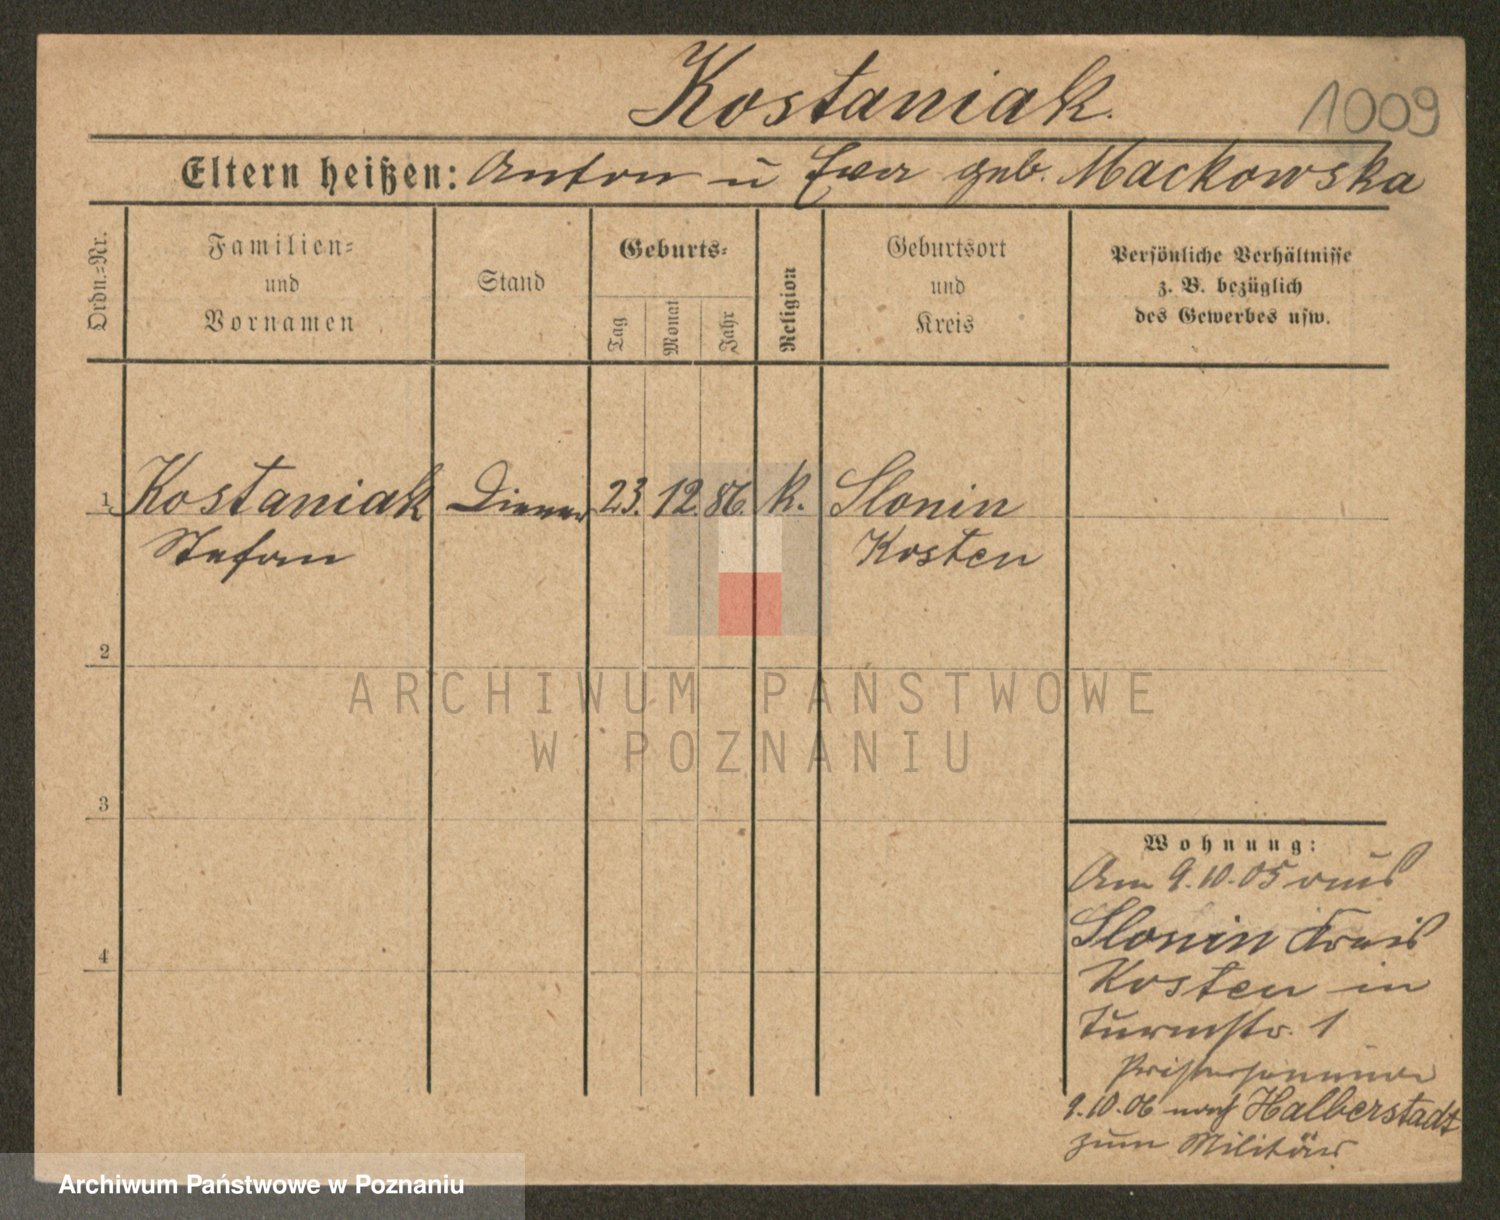 Kostaniak.
1009
Eltern heißen: Anton u Ewa geb. Mackowska
Ordn.-Nr.
Familien-
und
Vornamen
Stand
Geburts-
Tag
Monat
Jahr
Religion
Geburtsort
und
Kreis
Persönliche Verhältnisse
z. B. bezüglich
des Gewerbes usw.
1 Kostaniak Diener 23. 12. 86. k. Slonin
Stefan Kosten
2
3
4
Wohnung:
Am 9.10.05 aus
Slonin Kreis
Kosten in
Turmstr. 1
Priesterseminar
9.10.06 nach Halberstadt
zum Militär
ARCHIWUM PAŃSTWOWE
W POZNANIU
Archiwum Państwowe w Poznaniu